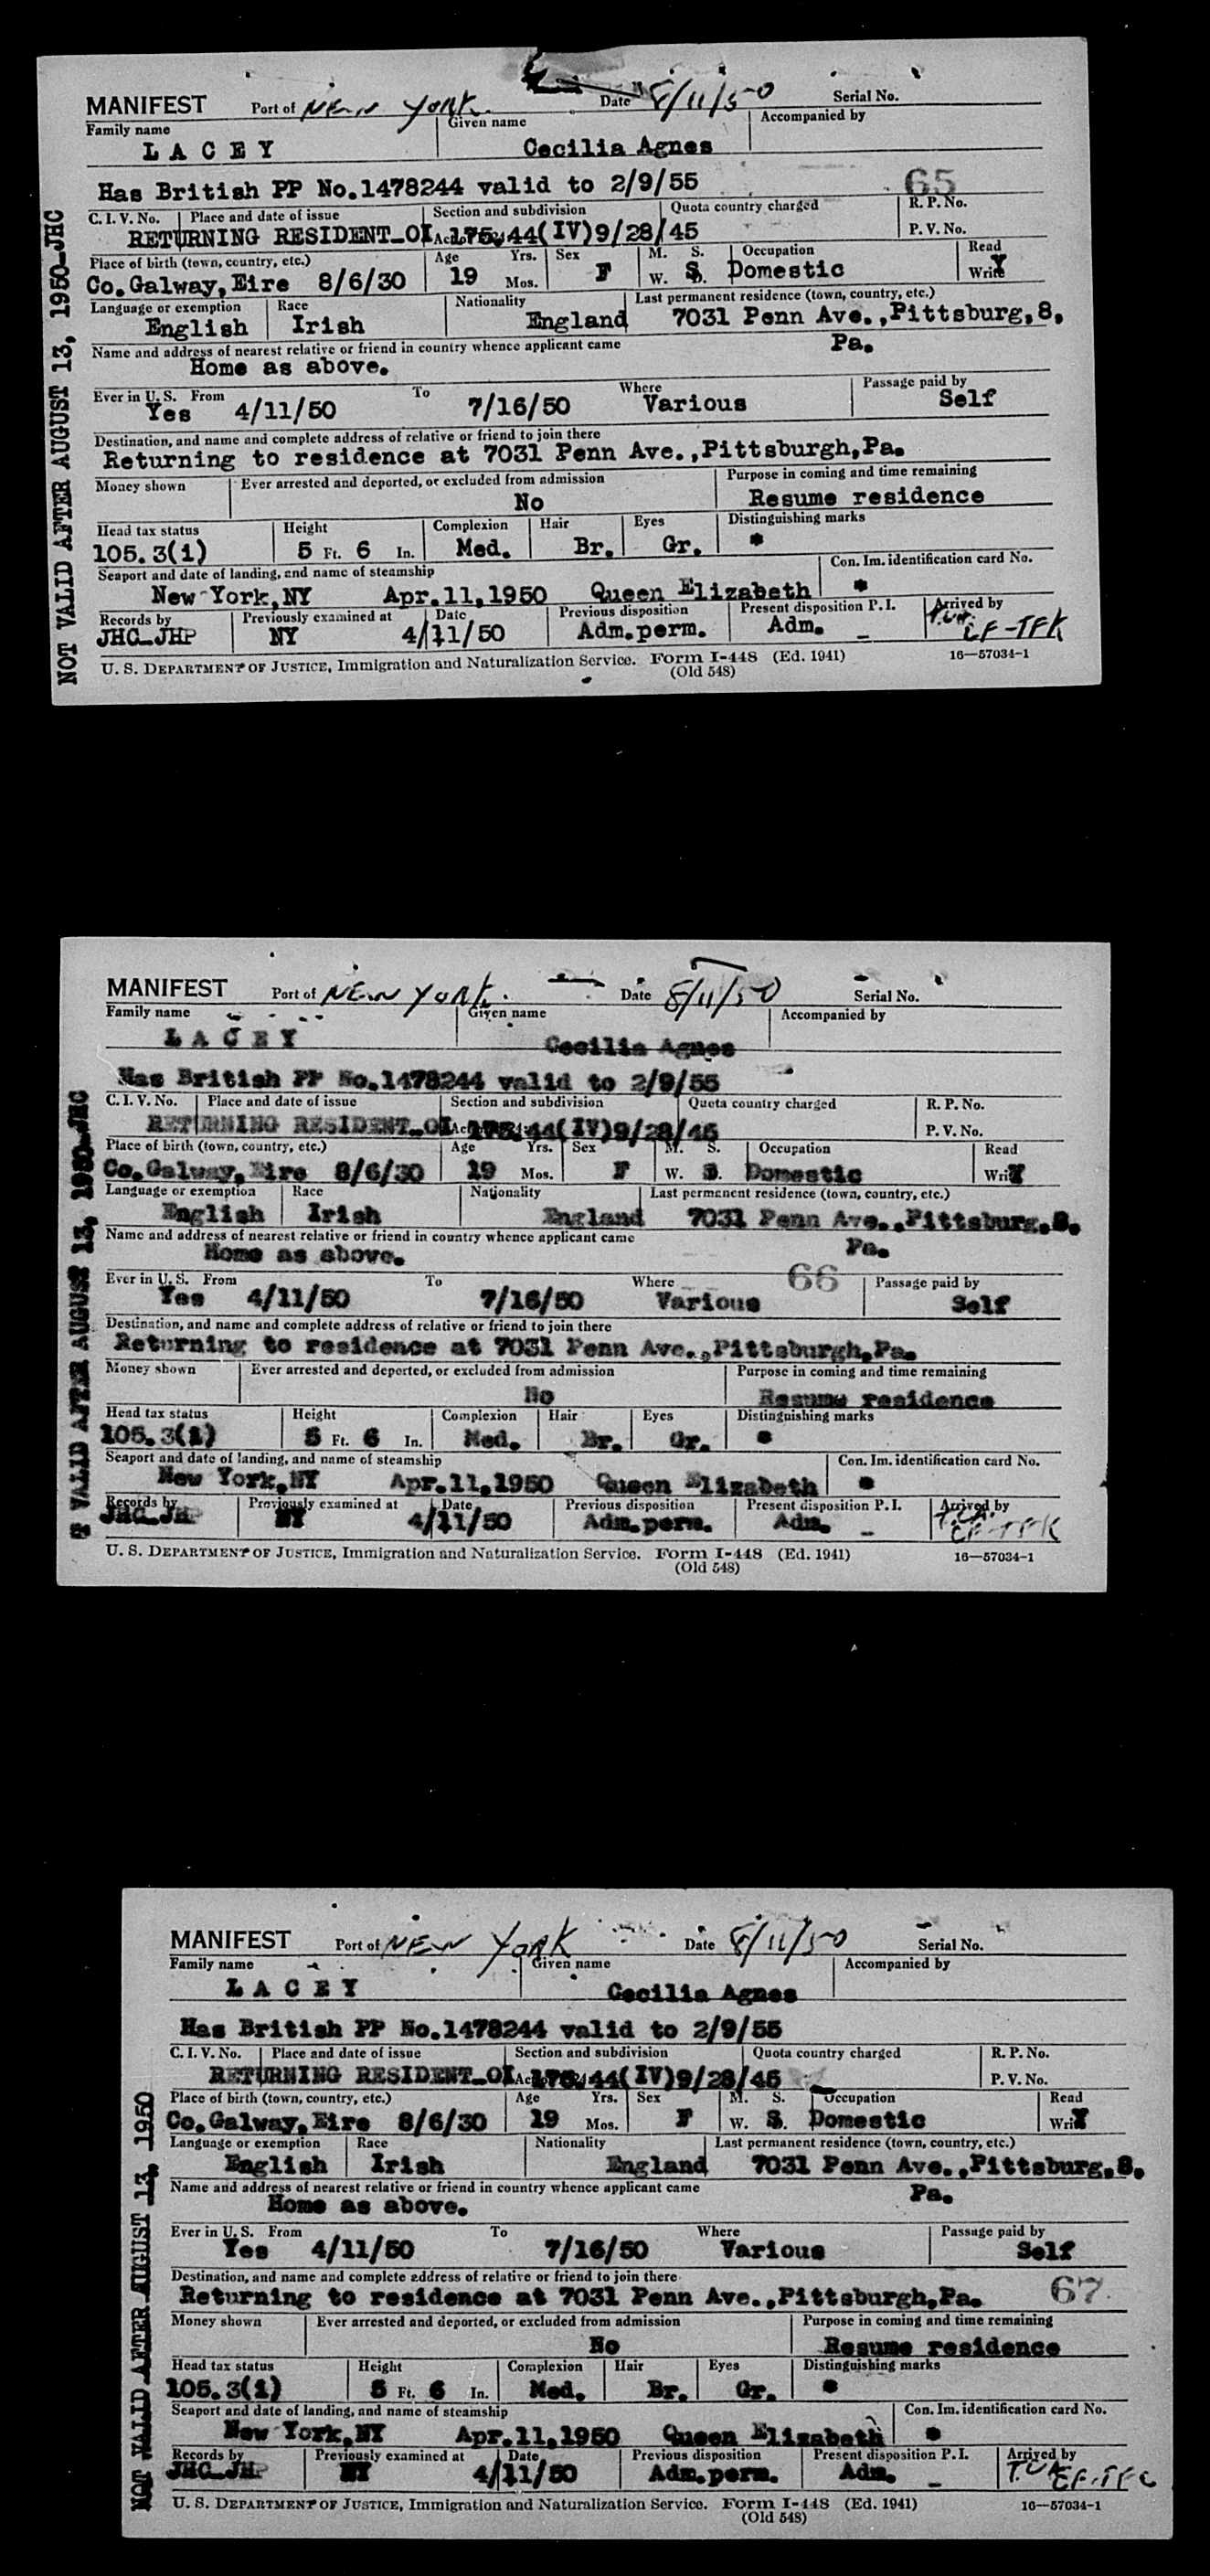 MANIFEST Port of NEW YORK. Date 8/11/50 Serial No.
Family name Given name Accompanied by
LACEY Cecilia Agnes
Has British PP No.1478244 valid to 2/9/55 65
C. I. V. No. Place and date of issue Section and subdivision Quota country charged R. P. No.
RETURNING RESIDENT_OI 175.44(IV)9/28/45 P. V. No.
Place of birth (town, country, etc.) Age Yrs. Sex M. S. Occupation Read
Co. Galway, Eire 8/6/30 19 Mos. F W. D. Domestic Write
Language or exemption Race Nationality Last permanent residence (town, country, etc.)
English Irish England 7031 Penn Ave.,Pittsburg,8,
Name and address of nearest relative or friend in country whence applicant came Pa.
Home as above.
Ever in U. S. From To Where Passage paid by
Yes 4/11/50 7/16/50 Various Self
Destination, and name and complete address of relative or friend to join there
Returning to residence at 7031 Penn Ave.,Pittsburgh,Pa.
Money shown Ever arrested and deported, or excluded from admission Purpose in coming and time remaining
No Resume residence
Head tax status Height Complexion Hair Eyes Distinguishing marks
105.3(1) 5 Ft. 6 In. Med. Br. Gr. *
Seaport and date of landing, and name of steamship Con. Im. identification card No.
New York,NY Apr.11,1950 Queen Elizabeth *
Records by Previously examined at Date Previous disposition Present disposition P. I. Arrived by
JHC_JHP NY 4/11/50 Adm.perm. Adm. _ CF-TFK
U. S. DEPARTMENT OF JUSTICE, Immigration and Naturalization Service. Form I-448 (Ed. 1941) 16—57034-1
(Old 548)
NOT VALID AFTER AUGUST 13, 1950_JHC
MANIFEST Port of NEW YORK. Date 8/11/50 Serial No.
Family name Given name Accompanied by
LACEY Cecilia Agnes
Has British PP No.1478244 valid to 2/9/55
C. I. V. No. Place and date of issue Section and subdivision Quota country charged R. P. No.
RETURNING RESIDENT_OI 175.44(IV)9/28/45 P. V. No.
Place of birth (town, country, etc.) Age Yrs. Sex M. S. Occupation Read
Co. Galway, Eire 8/6/30 19 Mos. F W. D. Domestic Write
Language or exemption Race Nationality Last permanent residence (town, country, etc.)
English Irish England 7031 Penn Ave.,Pittsburg,8,
Name and address of nearest relative or friend in country whence applicant came Pa.
Home as above.
Ever in U. S. From To Where 66 Passage paid by
Yes 4/11/50 7/16/50 Various Self
Destination, and name and complete address of relative or friend to join there
Returning to residence at 7031 Penn Ave.,Pittsburgh,Pa.
Money shown Ever arrested and deported, or excluded from admission Purpose in coming and time remaining
No Resume residence
Head tax status Height Complexion Hair Eyes Distinguishing marks
105.3(1) 5 Ft. 6 In. Med. Br. Gr. *
Seaport and date of landing, and name of steamship Con. Im. identification card No.
New York,NY Apr.11,1950 Queen Elizabeth *
Records by Previously examined at Date Previous disposition Present disposition P. I. Arrived by
JHC_JHP NY 4/11/50 Adm.perm. Adm. _ CF-TFK
U. S. DEPARTMENT OF JUSTICE, Immigration and Naturalization Service. Form I-448 (Ed. 1941) 16—57034-1
(Old 548)
T VALID AFTER AUGUST 13, 1950_JHC
MANIFEST Port of NEW YORK Date 8/11/50 Serial No.
Family name Given name Accompanied by
LACEY Cecilia Agnes
Has British PP No.1478244 valid to 2/9/55
C. I. V. No. Place and date of issue Section and subdivision Quota country charged R. P. No.
RETURNING RESIDENT_OI 175.44(IV)9/28/45 P. V. No.
Place of birth (town, country, etc.) Age Yrs. Sex M. S. Occupation Read
Co. Galway, Eire 8/6/30 19 Mos. F W. D. Domestic Write
Language or exemption Race Nationality Last permanent residence (town, country, etc.)
English Irish England 7031 Penn Ave.,Pittsburg,8,
Name and address of nearest relative or friend in country whence applicant came Pa.
Home as above.
Ever in U. S. From To Where Passage paid by
Yes 4/11/50 7/16/50 Various Self
Destination, and name and complete address of relative or friend to join there
Returning to residence at 7031 Penn Ave.,Pittsburgh,Pa. 67
Money shown Ever arrested and deported, or excluded from admission Purpose in coming and time remaining
No Resume residence
Head tax status Height Complexion Hair Eyes Distinguishing marks
105.3(1) 5 Ft. 6 In. Med. Br. Gr. *
Seaport and date of landing, and name of steamship Con. Im. identification card No.
New York,NY Apr.11,1950 Queen Elizabeth *
Records by Previously examined at Date Previous disposition Present disposition P. I. Arrived by
JHC_JHP NY 4/11/50 Adm.perm. Adm. _
U. S. DEPARTMENT OF JUSTICE, Immigration and Naturalization Service. Form I-448 (Ed. 1941) 16—57034-1
(Old 548)
NOT VALID AFTER AUGUST 13, 1950